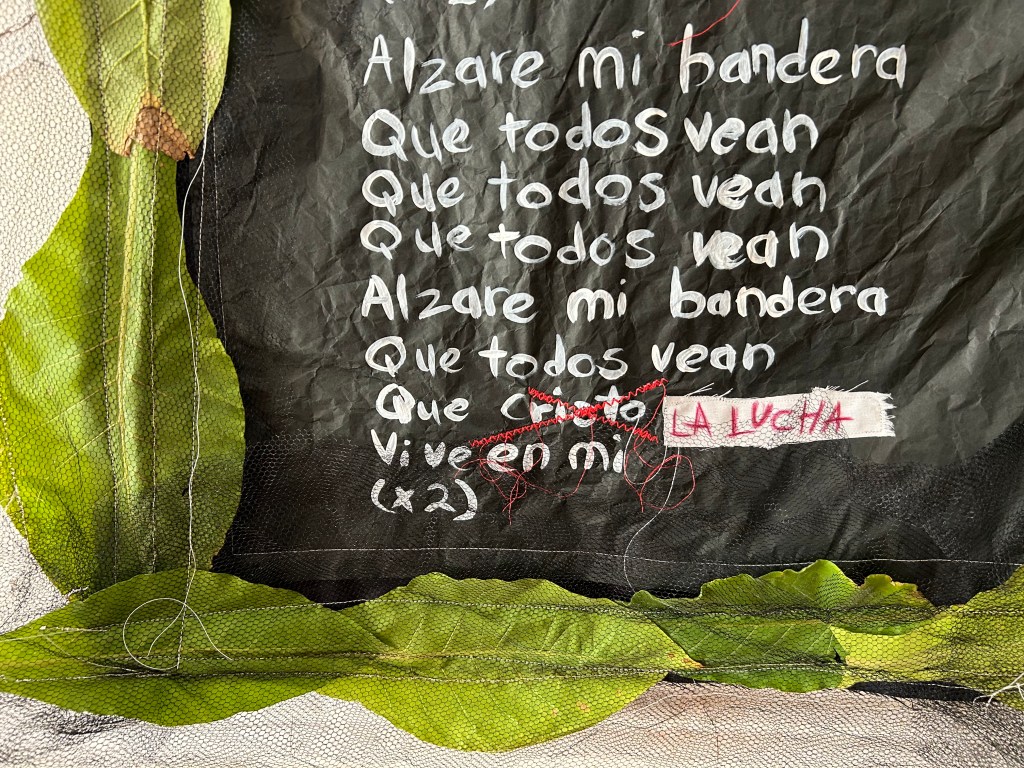 Alzare mi bandera
Que todos vean
Que todos vean
Que todos vean
Alzare mi bandera
Que todos vean
Que cristo LA LUCHA
Vive en mi
(x2)